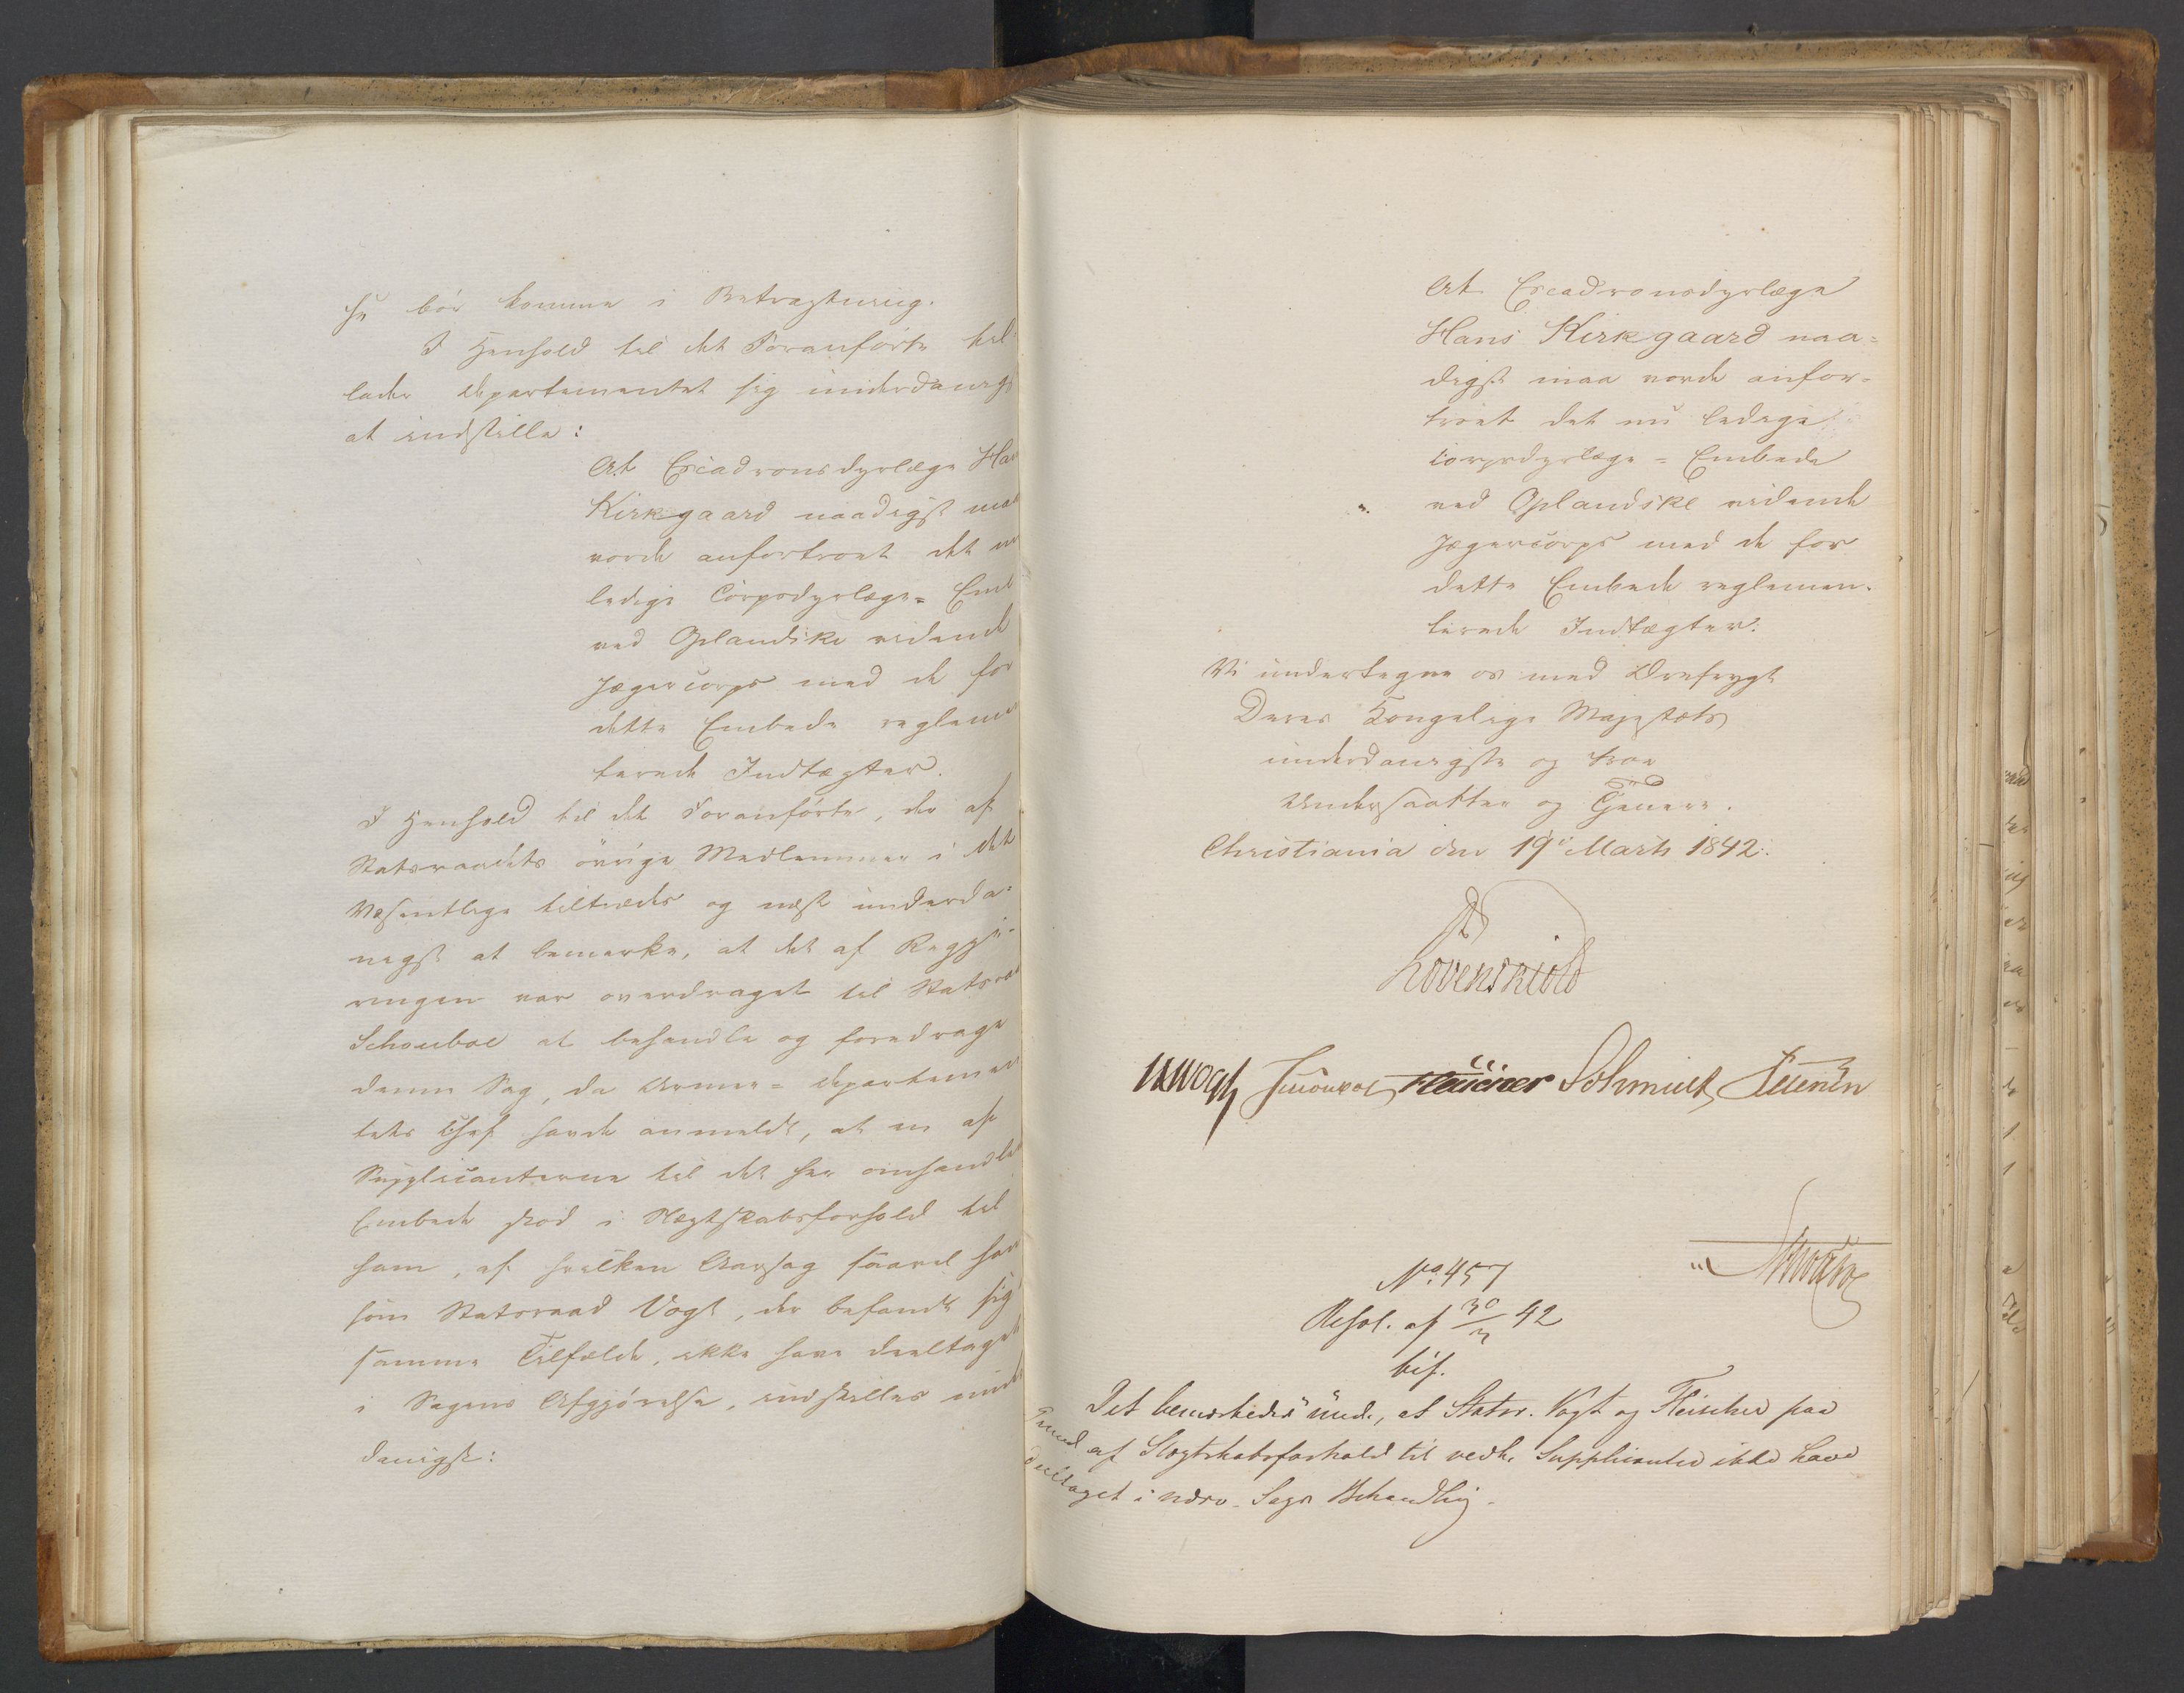 se bör komme i Betragtning.
I Henhold til det Foranförte til-
lader Departementet sig underdanigst
at indstille:
At Escadronsdyrlæge Hans
Kirkgaard naadigst maa
vorde anfortroet det nu
ledige Corpsdyrlæge= Emb
ved Oplandske ridende
Jægercorps med de for
dette Embede reglemen
terede Indtægter.
I Henhold til det Foranförte, der af
Statsraadets övrige Medlemmer i det
Væsentlige tiltrædes og næst underda=
nigst at bemærke, at det af Regje-
ringen var overdraget til Statsraad
Schouboe at behandle og foredrage
denne Sag, da Armee= Departemen
tets Chef havde anmeldt, at en af
Supplicanterne til det her omhandlede
Embede stod i Slægtskabsforhold til
ham, af hvilken Aarsag saavel han
som Statsraad Vogt, der befandt sig
samme Tilfælde, ikke have deeltaget
i Sagens Afgjörelse, indstilles under
danigst:
At Escadronsdyrlæge
Hans Kirkgaard naa=
digst maa vorde anfor-
troet det nu ledige
Corpsdyrlæge= Embede
ved Oplandske ridende
Jægercorps med de for
dette Embede reglemen-
terede Indtægter.
Vi undertegne os med Ærefrygt
Deres Kongelige Majestæts
underdanigste og troe
Undersaatter og Tjenere.
Christiania den 19de Marts 1842.
Lövenskiold
Vogt Schouboe Fleischer Schmidt
No. 457
Resol. af 30/3 42
bif.
Det bemærkedes und., at Statsr. Vogt og Fleischer paa
Grund af Slægtskabsforhold til vedk. Supplicanter ikke have
deeltaget i nærv. Sags Behandling.